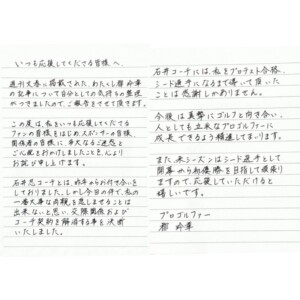 いつも応援してくださる皆様へ
週刊文春に掲載された わたくし都 玲華
の記事について自分としての気持ちの整理
がつきましたので、ご報告をさせて頂きます。
この度は、私をいつも応援してくださる
ファンの皆様をはじめ、スポンサーの皆様
関係者の皆様に、多大なるご迷惑と
ご心配をおかけしましたこと心より
お詫び申し上げます。
石井忍コーチとは、昨年からお付き合いを
しておりました。しかし今回の件で、私の
一番大事な両親を悲しませることは
出来ないと思い、交際関係および
コーチ契約を解消する事を決断
いたしました。
石井コーチには、私をプロテスト合格、
シード選手になるまで導いて頂いた
ことは感謝しかありません。
今後は真摯にゴルフと向き合い、
人としても立派なプロゴルファーに
成長できるよう精進してまいります。
また、来シーズンはシード選手として
開幕から初優勝を目指して頑張り
ますので、応援していただけると
嬉しいです。
プロゴルファー
都 玲華